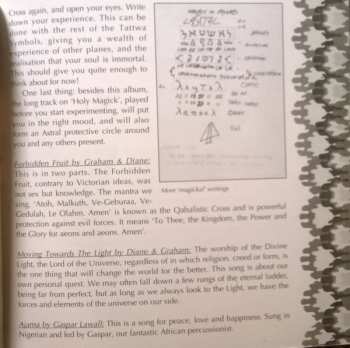 Cross again, and open your eyes. Write
down your experience. This can be
done with the rest of the Tattwa
Symbols, giving you a wealth of
experience of other planes, and the
realisation that your soul is immortal.
This should give you quite enough to
think about for now!
One last thing: besides this album,
the long track on 'Holy Magick', played
before you start experimenting, will put
you in the right mood, and will also
form an Astral protective circle around
you and any others present.
More 'magickal' writings
Forbidden Fruit by Graham & Diane:
This is in two parts. The Forbidden
Fruit, contrary to Victorian ideas, was
not sex but knowledge. The mantra we
sing, 'Atoh, Malkuth, Ve-Geburaa, Ve-
Gedulah, Le Olahm, Amen' is known as the Qabalistic Cross and is powerful
protection against evil forces. It means 'To Thee, the Kingdom, the Power and
the Glory for aeons and aeons. Amen'.
Moving Towards The Light by Diane & Graham: The worship of the Divine
Light, the Lord of the Universe, regardless of in which religion, creed or form, is
the one thing that will change the world for the better. This song is about our
own personal quest. We may often fall down a few rungs of the eternal ladder,
being far from perfect, but as long as we always look to the Light, we have the
forces and elements of the universe on our side.
Ajama by Gaspar Lawal: This is a song for peace, love and happiness. Sung in
Nigerian and led by Gaspar, our fantastic African percussionist.